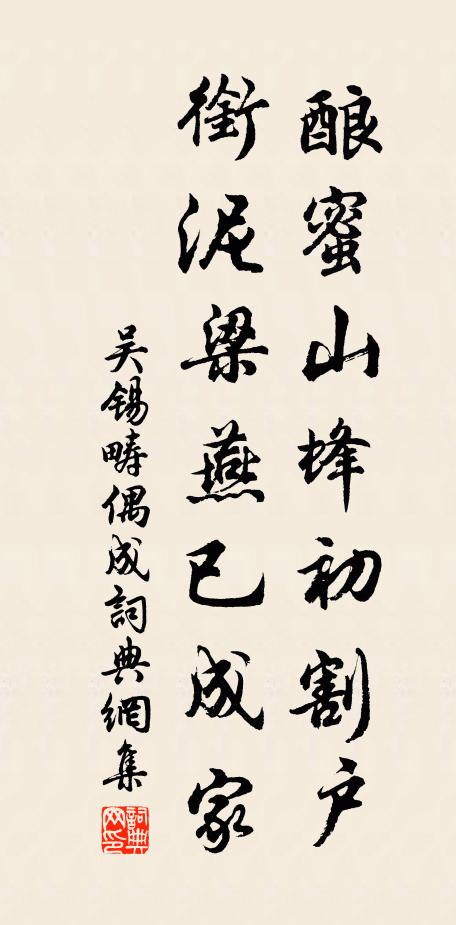 酿蜜山蜂初割户
衔泥梁燕已成家
吴锡畴偶成词典網集
詞典网印